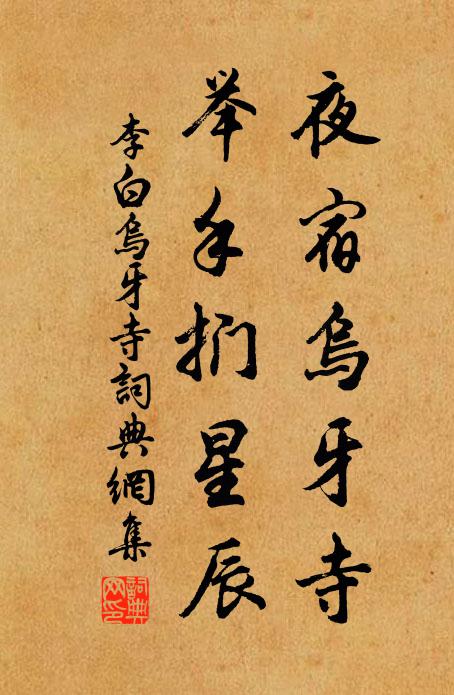 夜宿烏牙寺
举手捫星辰
李白烏牙寺詞典網集
詞典
网印